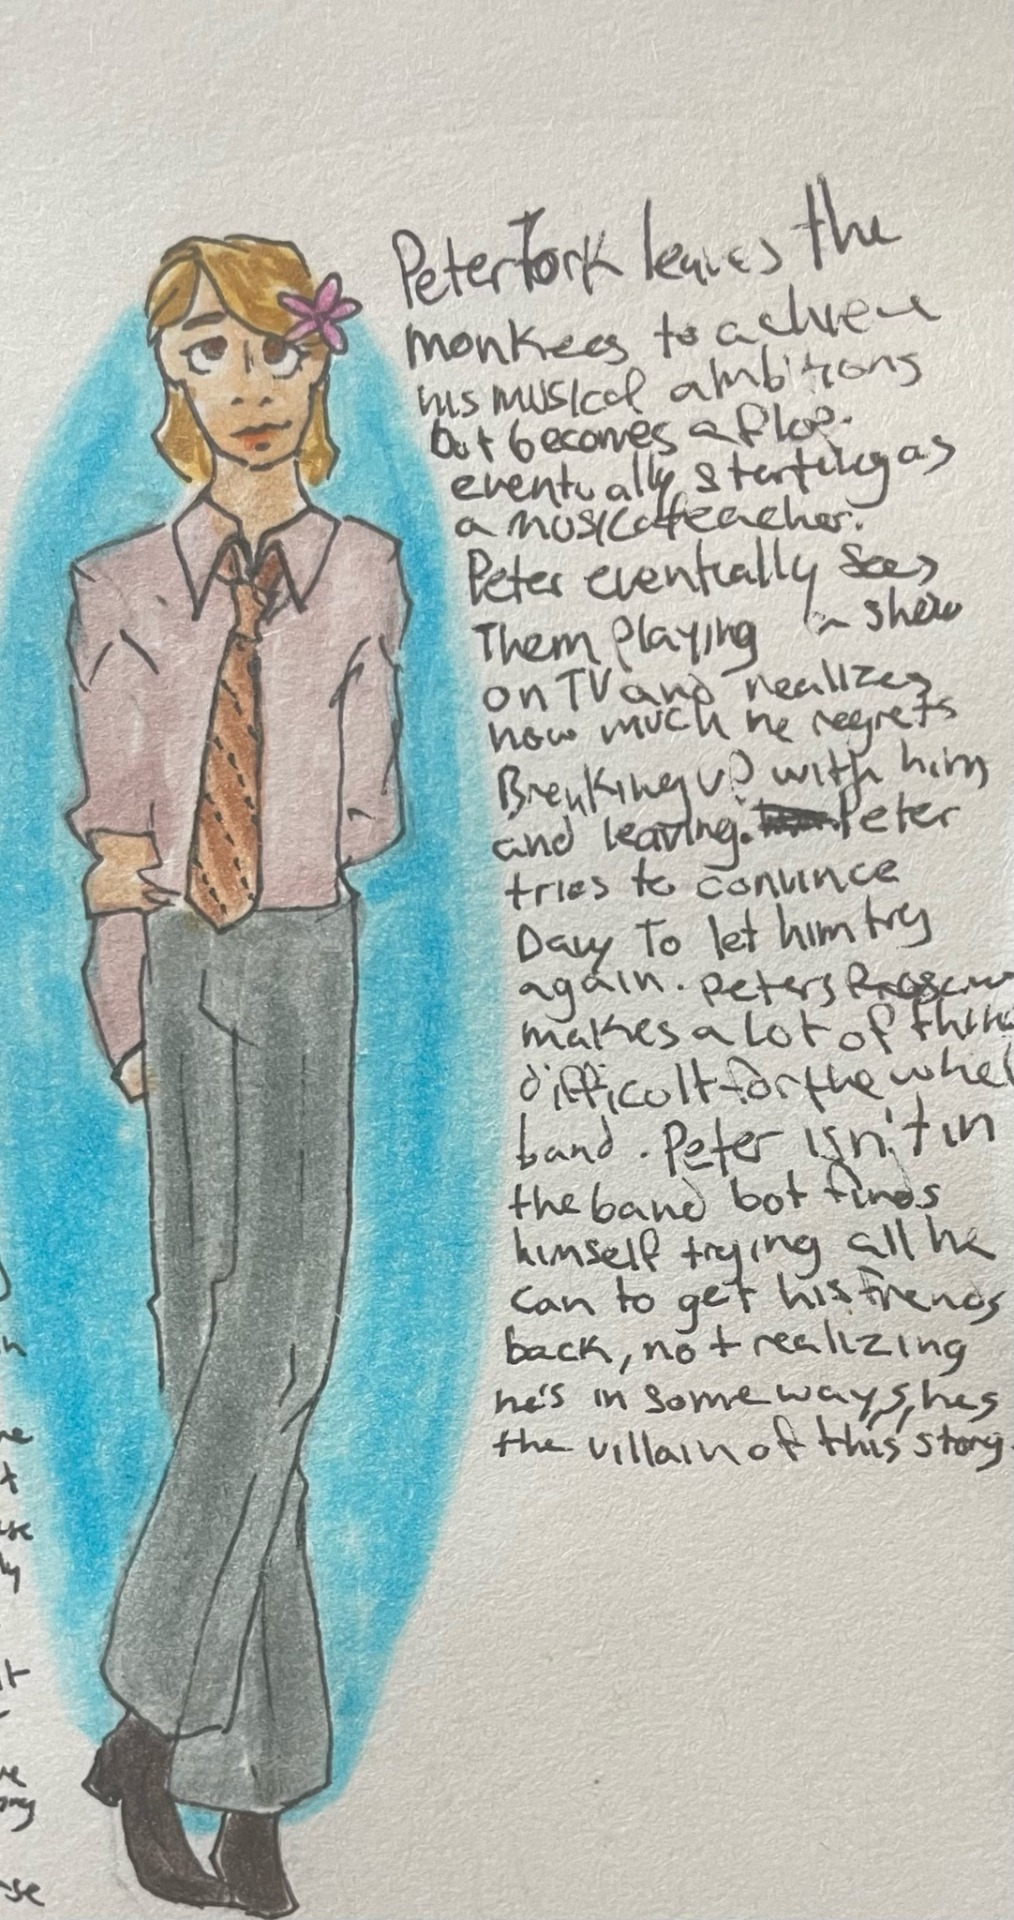 Peter Tork leaves the
monkees to achieve
his musical ambitions
but becomes a flop.
eventually starting as
a music teacher.
Peter eventually sees
Them playing a show
on TV and realizes
how much he regrets
Breaking up with him
and leaving. Peter
tries to convince
Davy To let him try
again. Peters
makes a lot of
difficult for the
band. Peter isn't in
the band but finds
himself trying all he
can to get his friends
back, not realizing
he's in some ways, hes
the villain of this story.